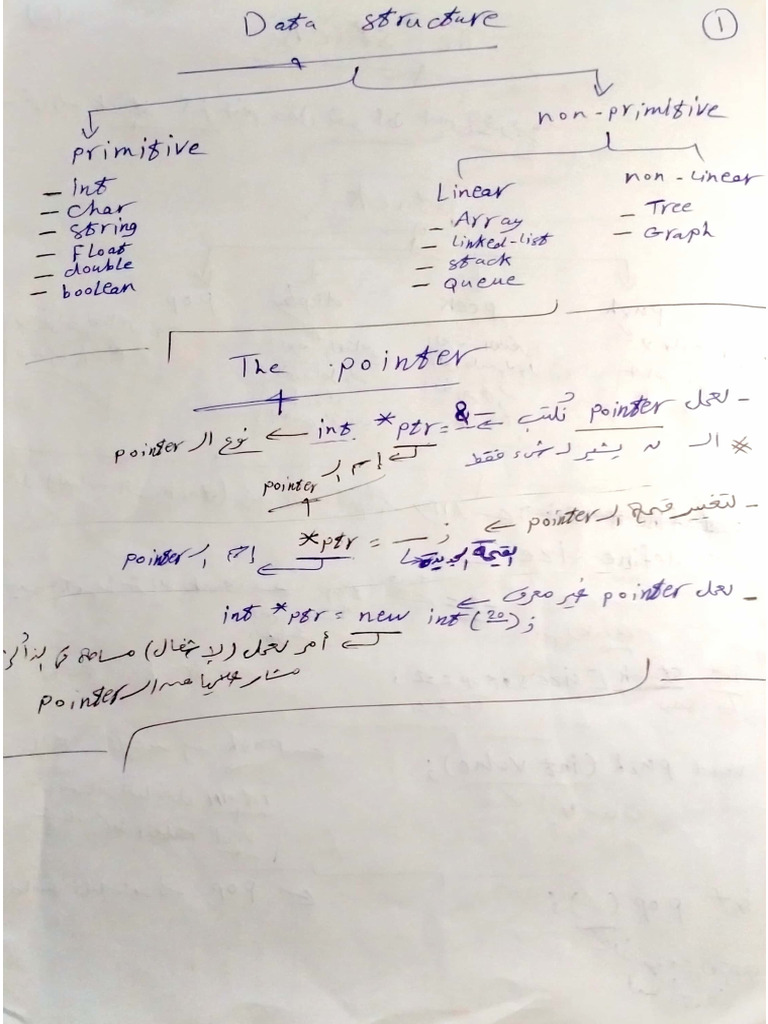 Data structure
1
primitive
non-primitive
- int
- char
- string
- Float
- double
- boolean
Linear
- Array
- Linked-list
- stack
- Queue
non-Linear
- Tree
- Graph
The pointer
- لعمل pointer نكتب ← int *ptr = & ← نوع الـ pointer
* الـ يشير لـ شيء فقط
إسم الـ pointer
- لتغيير قيمة الـ pointer ← *ptr = ــ ;
القيمة الجديدة
إسم الـ pointer
- لعمل pointer غير معرف ←
int *ptr = new int(20);
أمر لعمل (لإشغال) مساحة في الذاكرة
مشار عليها من الـ pointer